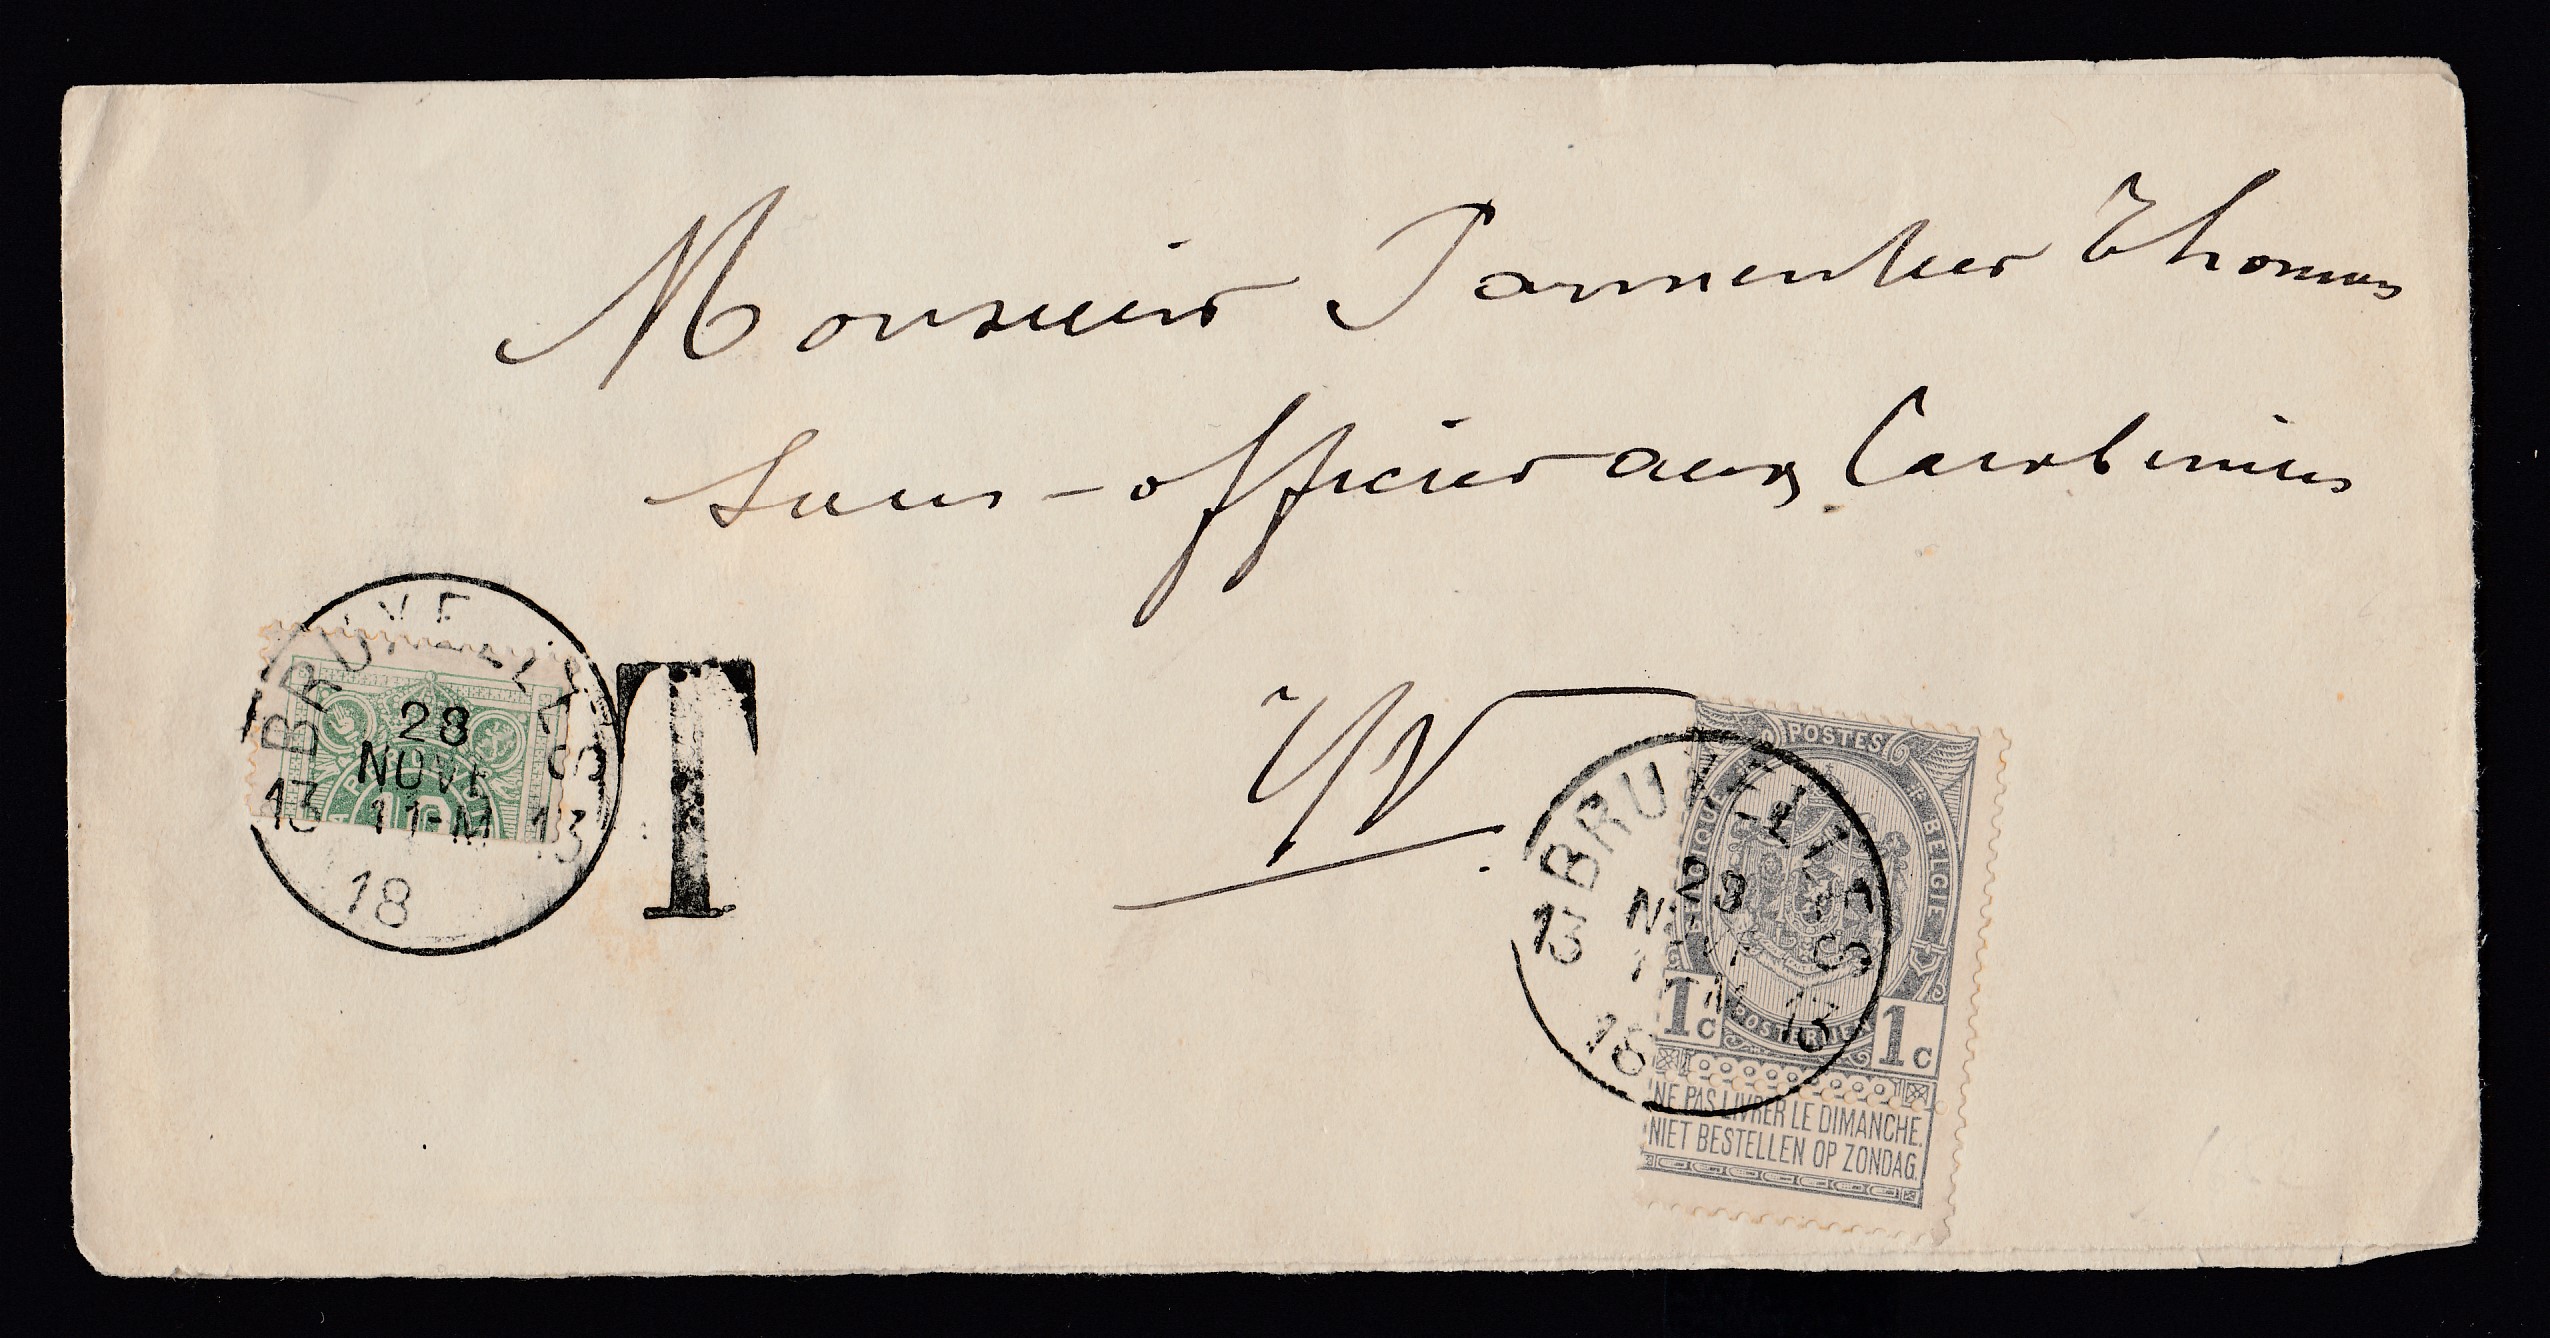 Monsieur Parmentier Thomas
Sous-officier aux Carabiniers
EV
BRUXELLES
28
NOVE
13 11-M 13
18
T
POSTES
BELGIQUE BELGIE
POSTERIJEN
1c 1c
NE PAS LIVRER LE DIMANCHE.
NIET BESTELLEN OP ZONDAG.
BRUXELLES
28
13 13
18